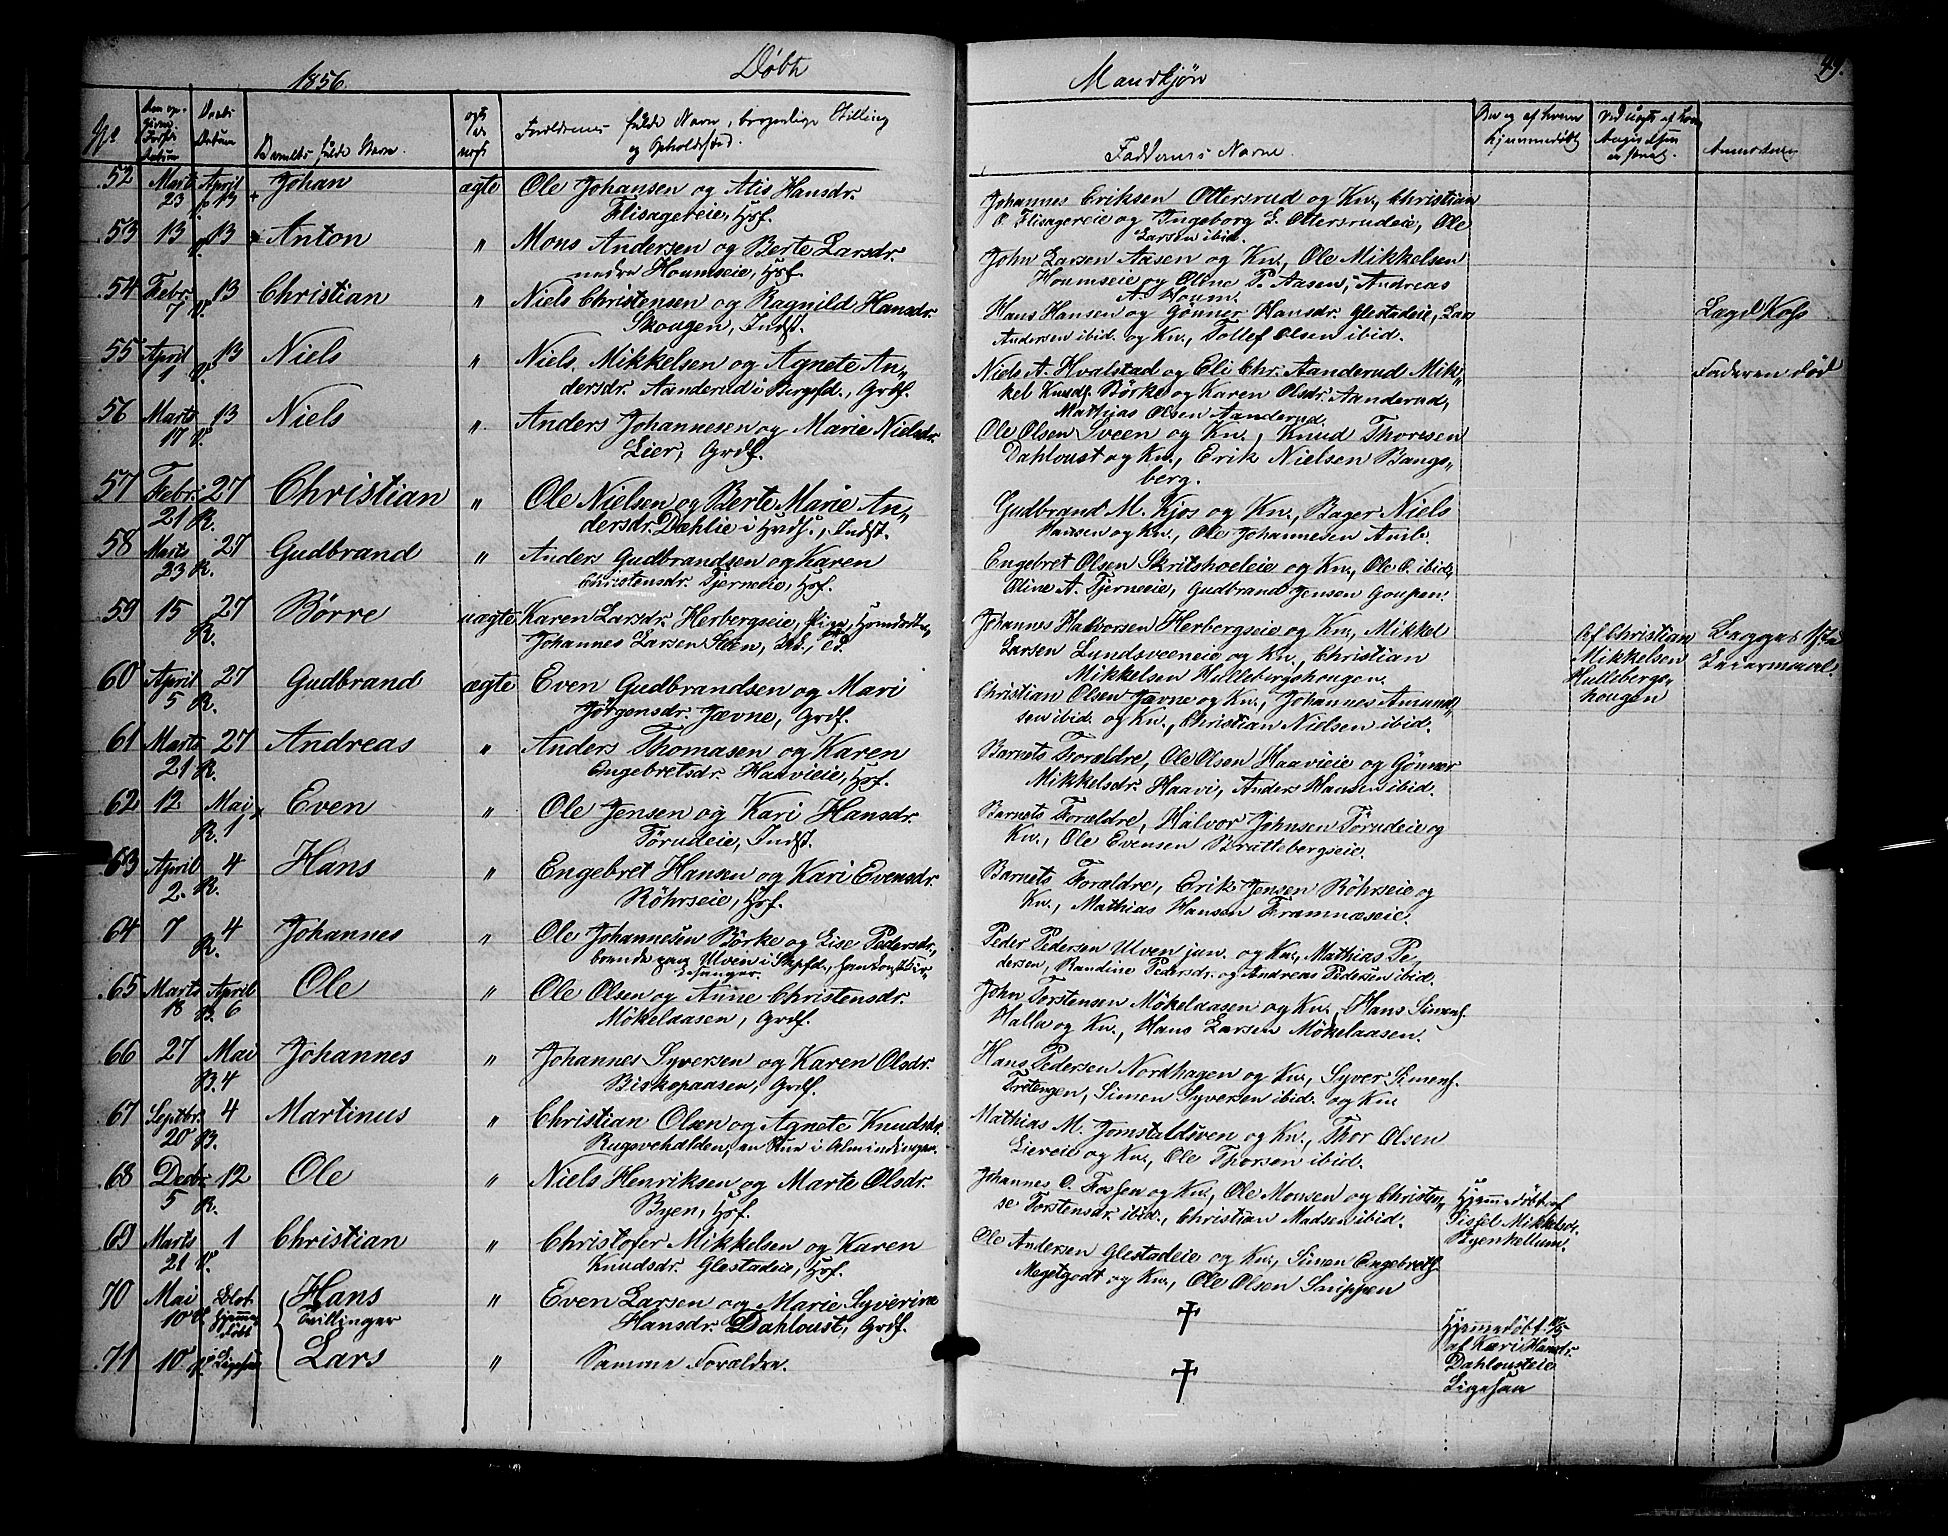 1856.
Døbte
Mandkjøn
49.
No
Barnets fulde Navn.
Forældrenes fulde Navn, borgerlige Stilling
og Opholdssted.
Faddernes Navne.
52 Marts 23 April 13 Johan ægte Ole Johansen og Atis Hansdr.
Flisagereie, Hsf.
Johannes Eriksen Ottersrud og Kn., Christian
O. Flisagereie og Ingeborg L. Ottersrudeie, Ole
Larsen ibid.
53 13 V. 13 Anton " Mons Andersen og Berte Larsdr.
nedre Houmseie, Hsf.
John Larsen Aasen og Kn., Ole Mikkelsen
Houmseie og Oline P. Aasen, Andreas
A. Houm.
54 Febr. 7 V. 13 Christian " Niels Christensen og Ragnild Hansdr.
Skougen, Indst.
Hans Hansen og Gønner Hansdr. Glestadeie, Lars
Andersen ibid. og Kn., Tollef Olsen ibid.
55 April 1 V. 13 Niels " Niels Mikkelsen og Agnete An-
dersdr. Aanderud i Bergsfd., Grdf.
Niels A. Hvalstad og Eli Chr. Aanderud Mik-
kel Knuds. Börke og Karen Olsdr. Aanderud,
Mathias Olsen Aanderud.
Faderen död
56 Marts 17 V. 13 Niels " Anders Johannesen og Marie Nielsdr.
Lier, Grdf.
Ole Olsen Sveen og Kn., Knud Thoresen
Dahloust og Kn., Erik Nielsen Bangs-
berg.
57 Febr. 21 R. 27 Christian " Ole Nielsen og Berte Marie An-
dersdr. Dæhlie i Hrds., Indst.
Gudbrand M. Kjos og Kn., Bager Niels
Hansen og Kn., Ole Johannesen
58 Marts 23 R. 27 Gudbrand " Anders Gudbrandsen og Karen
Christensdr. Tjerneie, Hsf.
Engebret Olsen Skritshoeleie og Kn., Ole O. ibid.,
Eline A. Tjerneie, Gudbrand Jensen Goupen.
59 15 R. 27 Børre uægte Karen Larsdr. Herbergseie, Pige,
Johannes Larsen Steen,
Johannes Halvorsen Herbergseie og Kn., Mikkel
Larsen Lundsveeneie og Kn., Christian
Mikkelsen Hullebergshougen.
Af Christian
Mikkelsen
Hullebergs-
hougen
Begges 1ste
Leiermaal.
60 April 5 R. 27 Gudbrand ægte Even Gudbrandsen og Mari
Jörgensdr. Jævne, Grdf.
Christian Olsen Jævne og Kn., Johannes Amund-
sen ibid. og Kn., Christian Nielsen ibid.
61 Marts 21 R. 27 Andreas " Anders Thomasen og Karen
Engebretsdr. Haavieie, Hsf.
Barnets Forældre, Ole Olsen Haavieie og Gönner
Mikkelsdr. Haavi, Anders Hansen ibid.
62 12 R. Mai 1 Even " Ole Jensen og Kari Hansdr.
Törudeie, Indst.
Barnets Forældre, Halvor Johnsen Törudeie og
Kn., Ole Evensen Brattebergseie.
63 April 2. R. 4 Hans " Engebret Hansen og Kari Evensdr.
Röhrseie, Hsf.
Barnets Forældre, Erik Jensen Röhrseie og
Kn., Mathias Hansen Framnæseie.
64 7 R. 4 Johannes " Ole Johannesen Börke og Lise Pedersdr.,
Ulven i
Peder Pedersen Ulven jun. og Kn., Mathias Pe-
dersen, Randine Pedersdr. og Andreas Pedersen ibid.
65 Marts 18 B. April 6 Ole " Ole Olsen og Anne Christensdr.
Mökelaasen, Grdf.
John Torstensen Mökelaasen og Kn., Hans Simens.
Halla og Kn., Hans Larsen Mökelaasen.
66 27 Mai B. 4 Johannes " Johannes Syversen og Karen Olsdr.
Biskopaasen, Grdf.
Hans Pedersen Nordhagen og Kn., Syver Simens.
Simen Syversen ibid. og Kn.
67 Septbr. 20 B. 4 Martinus " Christian Olsen og Agnete Knudsdr.
Rugsvehalden, en Stue i Almindingen.
Mathias M. Jomstadsven og Kn., Thor Olsen
Liereie og Kn., Ole Thorsen ibid.
68 Decbr. 5 R. 12 Ole " Niels Henriksen og Marte Olsdr.
Byen, Hsf.
Johannes O. Fossen og Kn., Ole Monsen og Christen-
se Torstensdr. ibid., Christian Madsen ibid.
Hjemmedöbt af
Sissel Mikkelsdr.
Byenkellum.
69 Marts 21 V. 1 Christian " Christofer Mikkelsen og Karen
Knudsdr. Glestadeie, Hsf.
Ole Andersen Glestadeie og Kn., Simen Engebreths.
Megetgodt og Kn., Ole Olsen Snippen
70 Mai 10 Blot hjemme döbt Hans
Tvillinger
" Even Larsen og Marie Syverine
Hansdr. Dahloust, Grdf.
†
Hjemmedöbt
af Kari Hansdr.
Dahlousteie
71 10 V. Ligesaa Lars " Samme Forældre.
†
Ligesaa